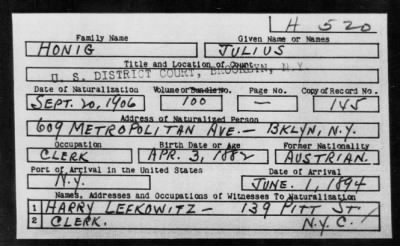 H 520
Family Name Given Name or Names
HONIG JULIUS
Title and Location of Court
U. S. DISTRICT COURT, BROOKLYN, N.Y.
Date of Naturalization Volume or Bundle No. Page No. Copy of Record No.
SEPT. 20, 1906 100 — 145
Address of Naturalized Person
609 METROPOLITAN AVE.— BKLYN, N.Y.
Occupation Birth Date or Age Former Nationality
CLERK APR. 3, 1882 AUSTRIAN.
Port of Arrival in the United States Date of Arrival
N.Y. JUNE. 1, 1894
Names, Addresses and Occupations of Witnesses To Naturalization
1 HARRY LEFKOWITZ — 139 PITT ST.
2 CLERK. N.Y.C.